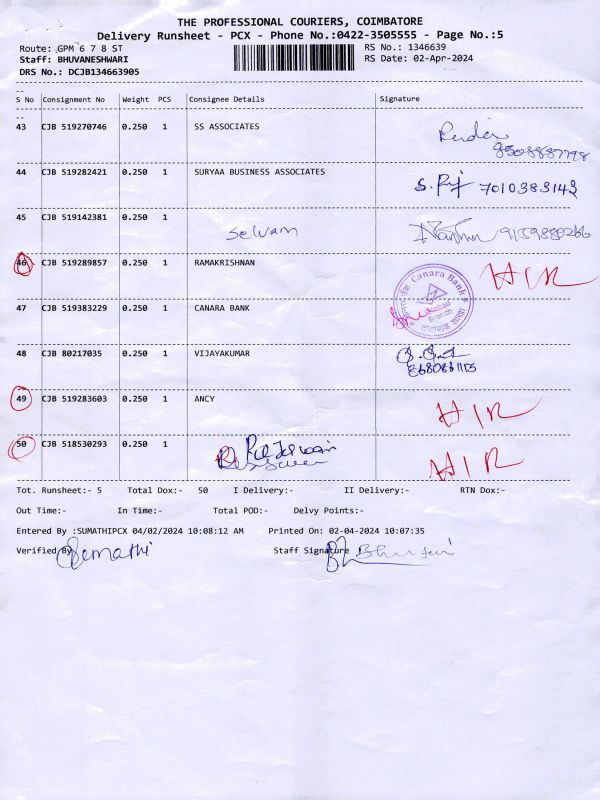 THE PROFESSIONAL COURIERS, COIMBATORE
Delivery Runsheet - PCX - Phone No.:0422-3505555 - Page No.:5
Route: GPM 6 7 8 ST RS No.: 1346639
Staff: BHUVANESHWARI RS Date: 02-Apr-2024
DRS No.: DCJB134663905
S No Consignment No Weight PCS Consignee Details Signature
43 CJB 519270746 0.250 1 SS ASSOCIATES
8508887798
44 CJB 519282421 0.250 1 SURYAA BUSINESS ASSOCIATES 7010383142
45 CJB 519142381 0.250 1 Selvam 9159880266
46 CJB 519289857 0.250 1 RAMAKRISHNAN HIR
Canara Bank
Branch
47 CJB 519383229 0.250 1 CANARA BANK
48 CJB 80217035 0.250 1 VIJAYAKUMAR
49 CJB 519283603 0.250 1 ANCY HIR
50 CJB 518530293 0.250 1 HIR
Tot. Runsheet:- 5 Total Dox:- 50 I Delivery:- II Delivery:- RTN Dox:-
Out Time:- In Time:- Total POD:- Delvy Points:-
Entered By :SUMATHIPCX 04/02/2024 10:08:12 AM Printed On: 02-04-2024 10:07:35
Verified By Sumathi Staff Signature